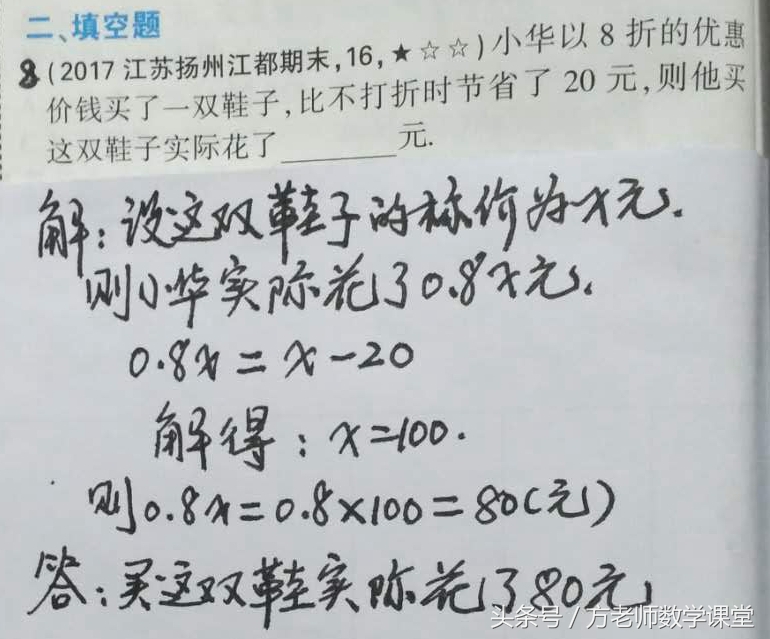 二、填空题
8(2017江苏扬州江都期末,16,★☆☆)小华以8折的优惠
价钱买了一双鞋子,比不打折时节省了20元,则他买
这双鞋子实际花了________元.
解:设这双鞋子的标价为x元.
则小华实际花了0.8x元.
0.8x=x-20
解得:x=100.
则0.8x=0.8×100=80(元)
答:买这双鞋实际花了80元
头条号/方老师数学课堂